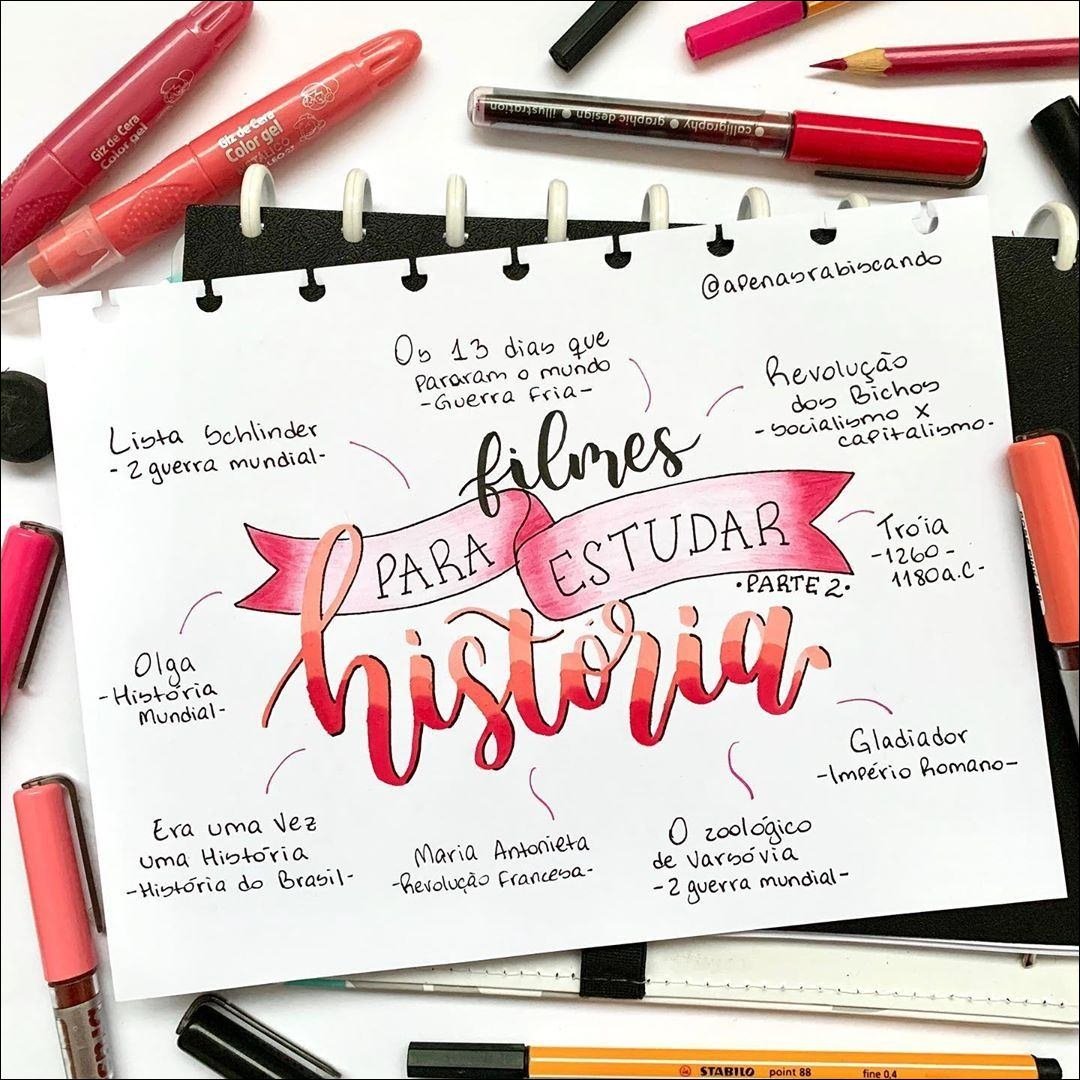 Giz de Cera
Color gel
Giz de Cera
Color gel
calligraphy • graphic design • illustration
@apenasrabiscando
Os 13 dias que
pararam o mundo
-Guerra Fria-
Revolução
dos Bichos
-socialismo x
capitalismo-
Lista Schlinder
-2 guerra mundial-
filmes
PARA ESTUDAR
•PARTE 2•
história
Tróia
-1260-
1180a.C-
Olga
-História
Mundial-
Gladiador
-Império Romano-
Era uma vez
uma História
-História do Brasil-
Maria Antonieta
-Revolução Francesa-
O zoológico
de Varsóvia
-2 guerra mundial-
STABILO point 88 fine 0,4